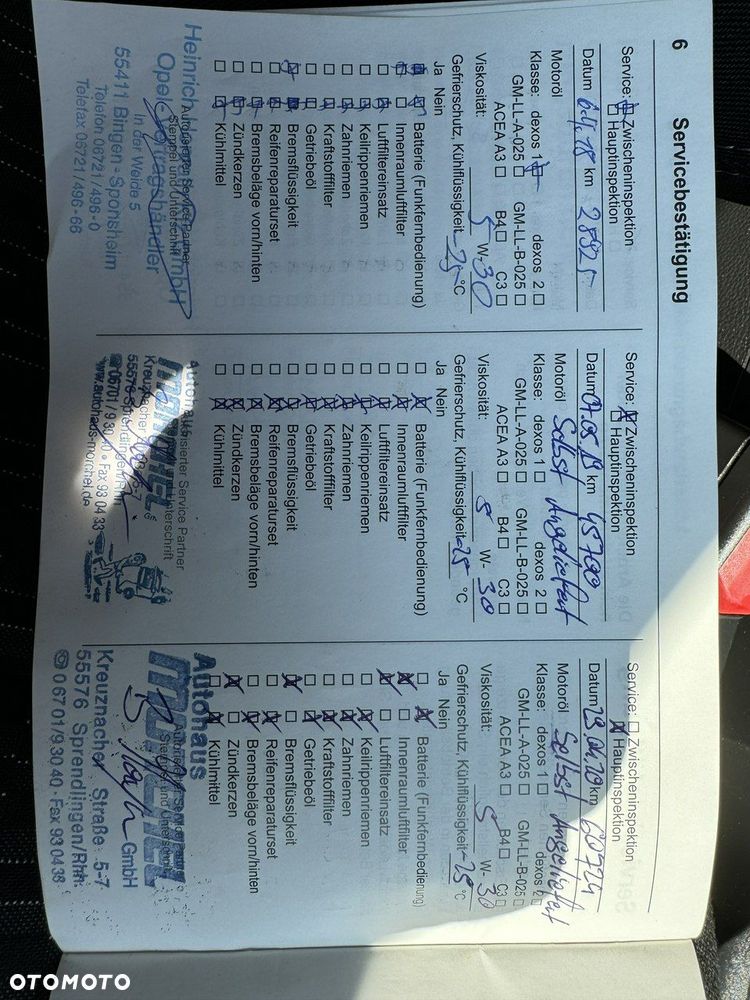 6 Servicebestätigung
Service: Zwischeninspektion
Hauptinspektion
Datum 6.4.18 km 28925
Motoröl
Klasse: dexos 1 dexos 2
GM-LL-A-025 GM-LL-B-025
ACEA A3 B4 C3
Viskosität: 5 W- 30
Gefrierschutz, Kühlflüssigkeit -25 °C
Ja Nein
Batterie (Funkfernbedienung)
Innenraumluftfilter
Luftfiltereinsatz
Keilrippenriemen
Zahnriemen
Kraftstofffilter
Getriebeöl
Bremsflüssigkeit
Reifenreparaturset
Bremsbeläge vorn/hinten
Zündkerzen
Kühlmittel
Stempel und Unterschrift
Heinrich GmbH
Opel Vertragshändler
In der Weide 5
55411 Bingen - Sponsheim
Telefon 06721/496-0
Telefax 06721/496-66
Service: Zwischeninspektion
Hauptinspektion
Datum 07.05.19 km 45700
Motoröl Selbst Angeliefert
Klasse: dexos 1 dexos 2
GM-LL-A-025 GM-LL-B-025
ACEA A3 B4 C3
Viskosität: 5 W- 30
Gefrierschutz, Kühlflüssigkeit -25 °C
Ja Nein
Batterie (Funkfernbedienung)
Innenraumluftfilter
Luftfiltereinsatz
Keilrippenriemen
Zahnriemen
Kraftstofffilter
Getriebeöl
Bremsflüssigkeit
Reifenreparaturset
Bremsbeläge vorn/hinten
Zündkerzen
Kühlmittel
Autorisierter Service Partner
Kreuznacher
55576 Sprendlingen/Rhh.
☎ 06701/9 30 40 • Fax 93 04 33
www.autohaus-morhel.de
Service: Zwischeninspektion
Hauptinspektion
Datum 23.04.19 km 60724
Motoröl Selbst Angeliefert
Klasse: dexos 1 dexos 2
GM-LL-A-025 GM-LL-B-025
ACEA A3 B4 C3
Viskosität: 5 W- 30
Gefrierschutz, Kühlflüssigkeit -25 °C
Ja Nein
Batterie (Funkfernbedienung)
Innenraumluftfilter
Luftfiltereinsatz
Keilrippenriemen
Zahnriemen
Kraftstofffilter
Getriebeöl
Bremsflüssigkeit
Reifenreparaturset
Bremsbeläge vorn/hinten
Zündkerzen
Kühlmittel
Autohaus
GmbH
Kreuznacher Straße 5-7
55576 Sprendlingen/Rhh.
☎ 06701/930 40 · Fax 930438
OTOMOTO